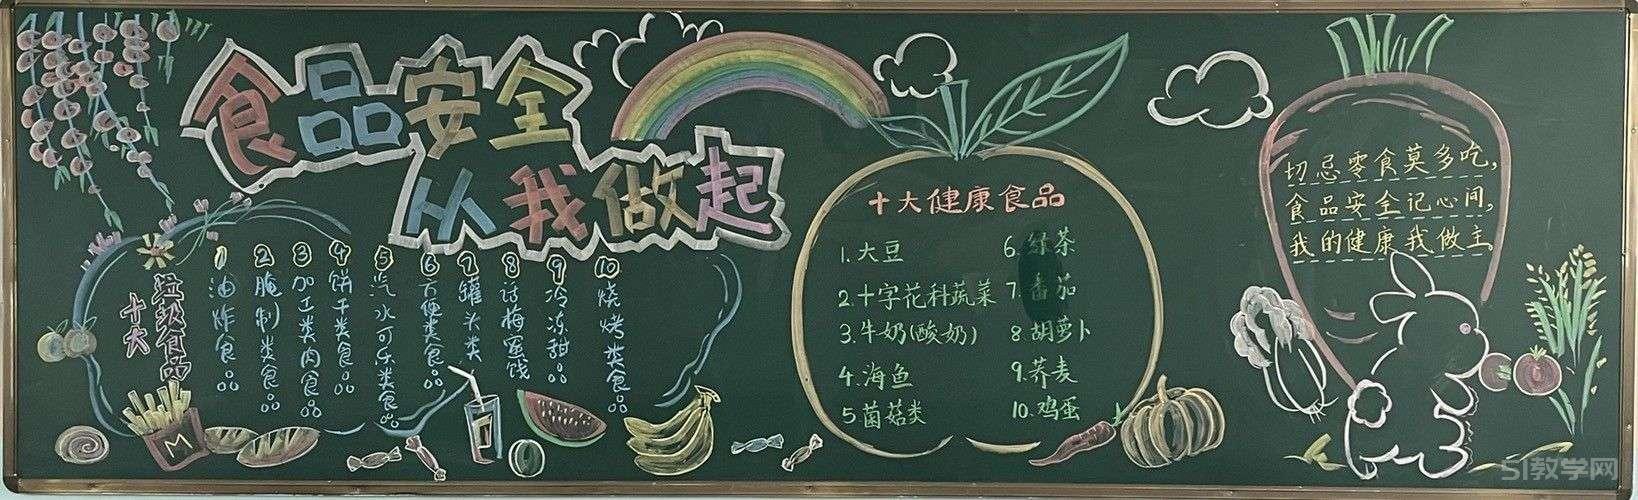 食品安全
从我做起
十大
垃圾食品
1 油炸食品
2 腌制类食品
3 加工类肉食品
4 饼干类食品
5 汽水可乐类食品
6 方便类食品
7 罐头类
8 话梅蜜饯
9 冷冻甜品
10 烧烤类食品
M
十大健康食品
1.大豆
2.十字花科蔬菜
3.牛奶(酸奶)
4.海鱼
5菌菇类
6.绿茶
7.番茄
8.胡萝卜
9.荞麦
10.鸡蛋
切忌零食莫多吃,
食品安全记心间,
我的健康我做主
51教学网